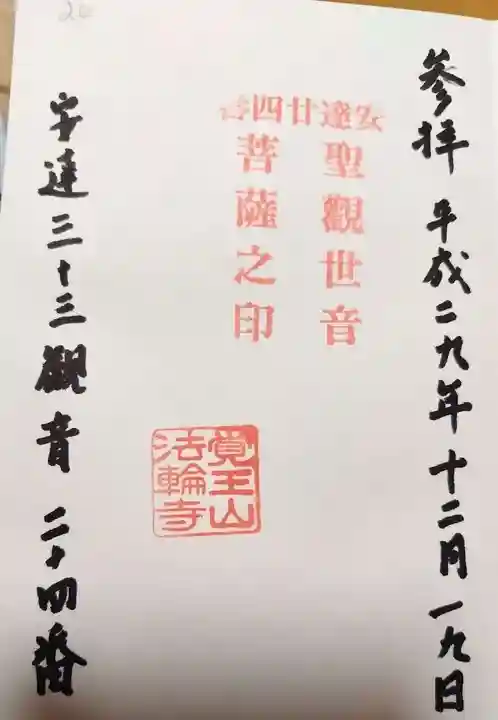 参拝 平成二九年十二月一九日
安達廿四番
聖觀世音
菩薩之印
覚王山
法輪寺
安達三十三観音 二十四番
20